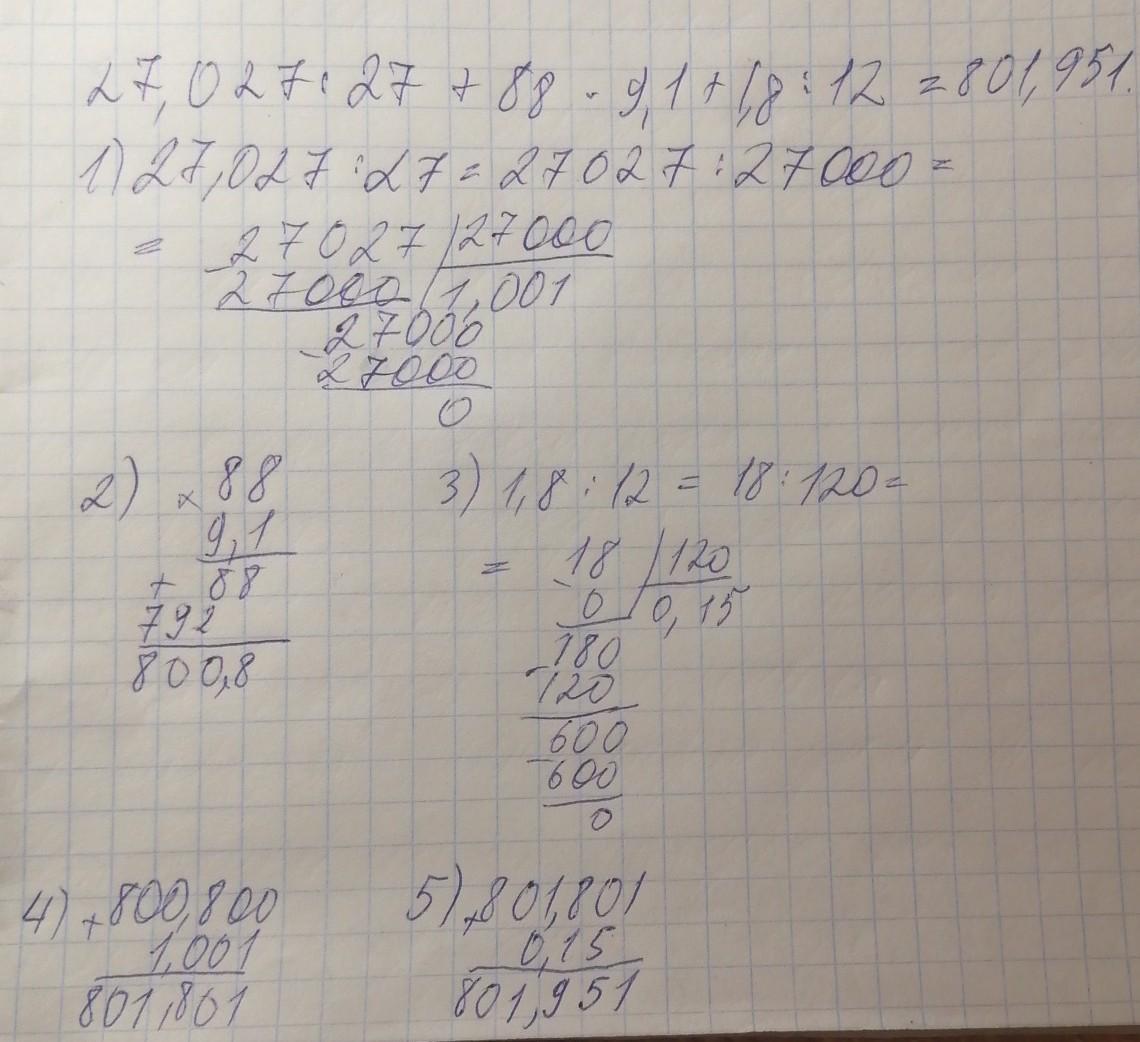 27,027 : 27 + 88 · 9,1 + 1,8 : 12 = 801,951.
1) 27,027 : 27 = 27027 : 27000 =
= 27027 | 27000
- 27000 | 1,001
27000
- 27000
0
2) × 88
9,1
+ 88
792
800,8
3) 1,8 : 12 = 18 : 120 =
= 18 | 120
- 0 | 0,15
180
- 120
600
- 600
0
4) + 800,800
1,001
801,801
5) + 801,801
0,15
801,951